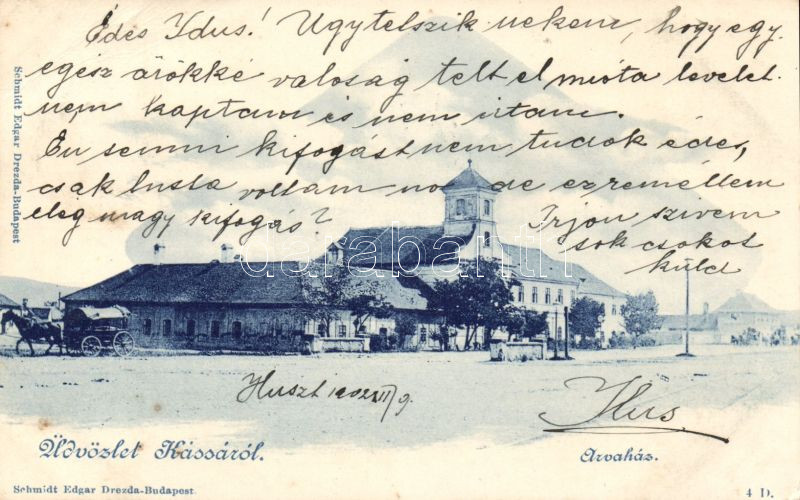 Édes Idus! Úgytelszik nekem, hogy egy
egész örökké valóság telt el mióta levelet
nem kaptam és nem irtam.
Én semmi kifogást nem tudok édes,
csak lusta voltam no de ez reméllem
elég nagy kifogás? Irjon szívem
sok csókot
küld
Schmidt Edgar Drezda-Budapest
darabanth
Huszt 1902
Üdvözlet Kassáról.
Árvaház.
Schmidt Edgar Drezda-Budapest.
4 D.